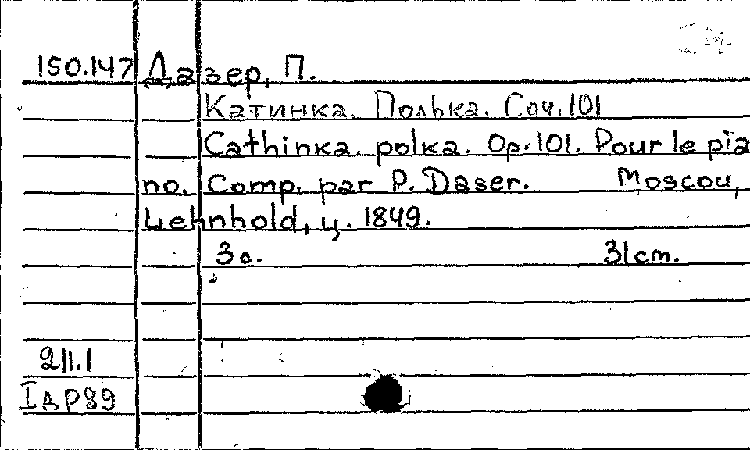 150.147 Дазер, П.
Катинка. Полька. Соч. 101
Cathinка. polка. Op. 101. Pour le pia
no. Comp. par P. Daser. Moscou,
Lehnhold, ц. 1849.
3 с. 31 cm.
211.1
I др 89